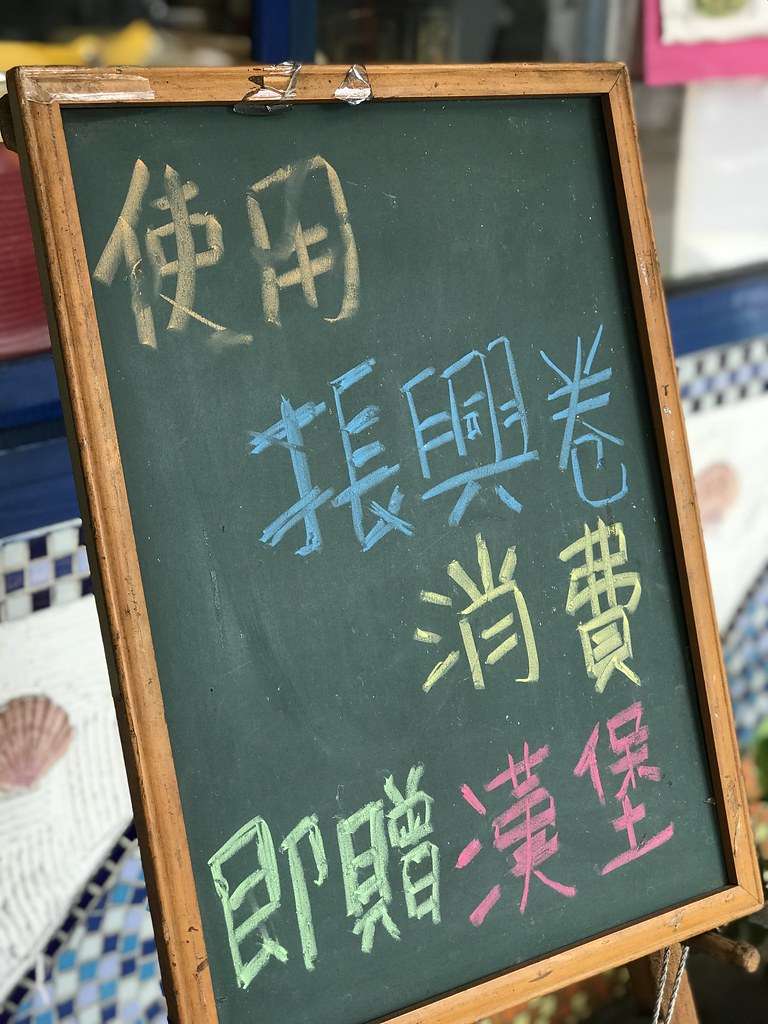 使用
振興卷
消費
即贈漢堡